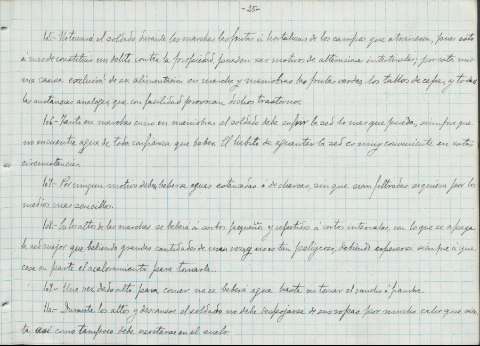 -25-
65.- No tocará el soldado durante las marchas los frutos ú hortalizas de los campos que atraviesen, pues esto
a mas de constituir un delito contra la propiedad pueden ser motivos de alteraciones intestinales; por esta mis-
ma causa excluirá de su alimentación en marchas y maniobras las frutas verdes, los tallos de cepa, y todas
las sustancias analogas que con facilidad provocan dichos trastornos.
66.- Tanto en marchas como en maniobras el soldado debe sufrir la sed lo mas que pueda, siempre que
no encuentre agua de toda confianza que beber. El hábito de aguantar la sed es muy conveniente en estas
circunstancias.
67.- Por ningun motivo debe beberse aguas estancadas o de charcas, sin que sean filtradas siquiera por los
medios mas sencillos.
68.- En los altos de las marchas se beberá á sorbos pequeños y repetidos á cortos intervalos, con lo que se apaga
la sed mejor que bebiendo grandes cantidades de una vez y no es tan peligroso, debiendo esperarse siempre á que
cese en parte el acaloramiento para tomarla.
69.- Una vez dado alto para comer no se beberá agua hasta no tener el rancho ó fiambre.
70.- Durante los altos y descansos el soldado no debe despojarse de sus ropas por mucho calor que sien-
ta asi como tampoco debe acostarse en el suelo.